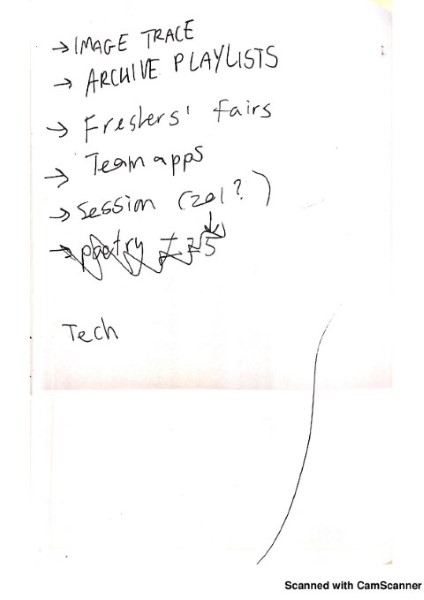 → IMAGE TRACE
→ ARCHIVE PLAYLISTS
→ Freshers' fairs
→ Team apps
→ Session (zo1?)
→ poetry
Tech
Scanned with CamScanner